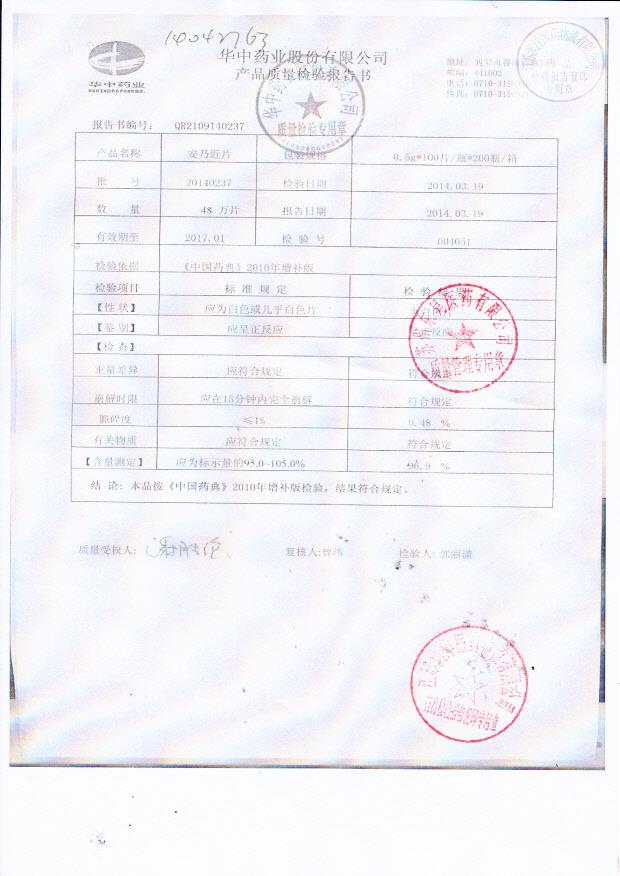 14042763
华中药业
华中药业股份有限公司
产品质量检验报告书
邮编：441002
报告书编号： QR2109140237
产品名称 安乃近片 包装规格 0.5g*100片/瓶*200瓶/箱
批 号 20140237 检验日期 2014.03.19
数 量 48 万片 报告日期 2014.03.19
有效期至 2017.01 检 验 号 004051
检验依据 《中国药典》2010年增补版
检验项目 标 准 规 定 检 验
【性状】 应为白色或几乎白色片
【鉴别】 应呈正反应
【检查】
重量差异 应符合规定 符合规定
崩解时限 应在15分钟内完全崩解 符合规定
脆碎度 ≤1% 0.48 %
有关物质 应符合规定 符合规定
【含量测定】 应为标示量的95.0~105.0% 96.9 %
结 论：本品按《中国药典》2010年增补版检验，结果符合规定。
质量受权人： 复核人：曾纬 检验人：郭丽潇
质量检验专用章
检验报告复印
专用章
医药有限公司
质量管理专用章